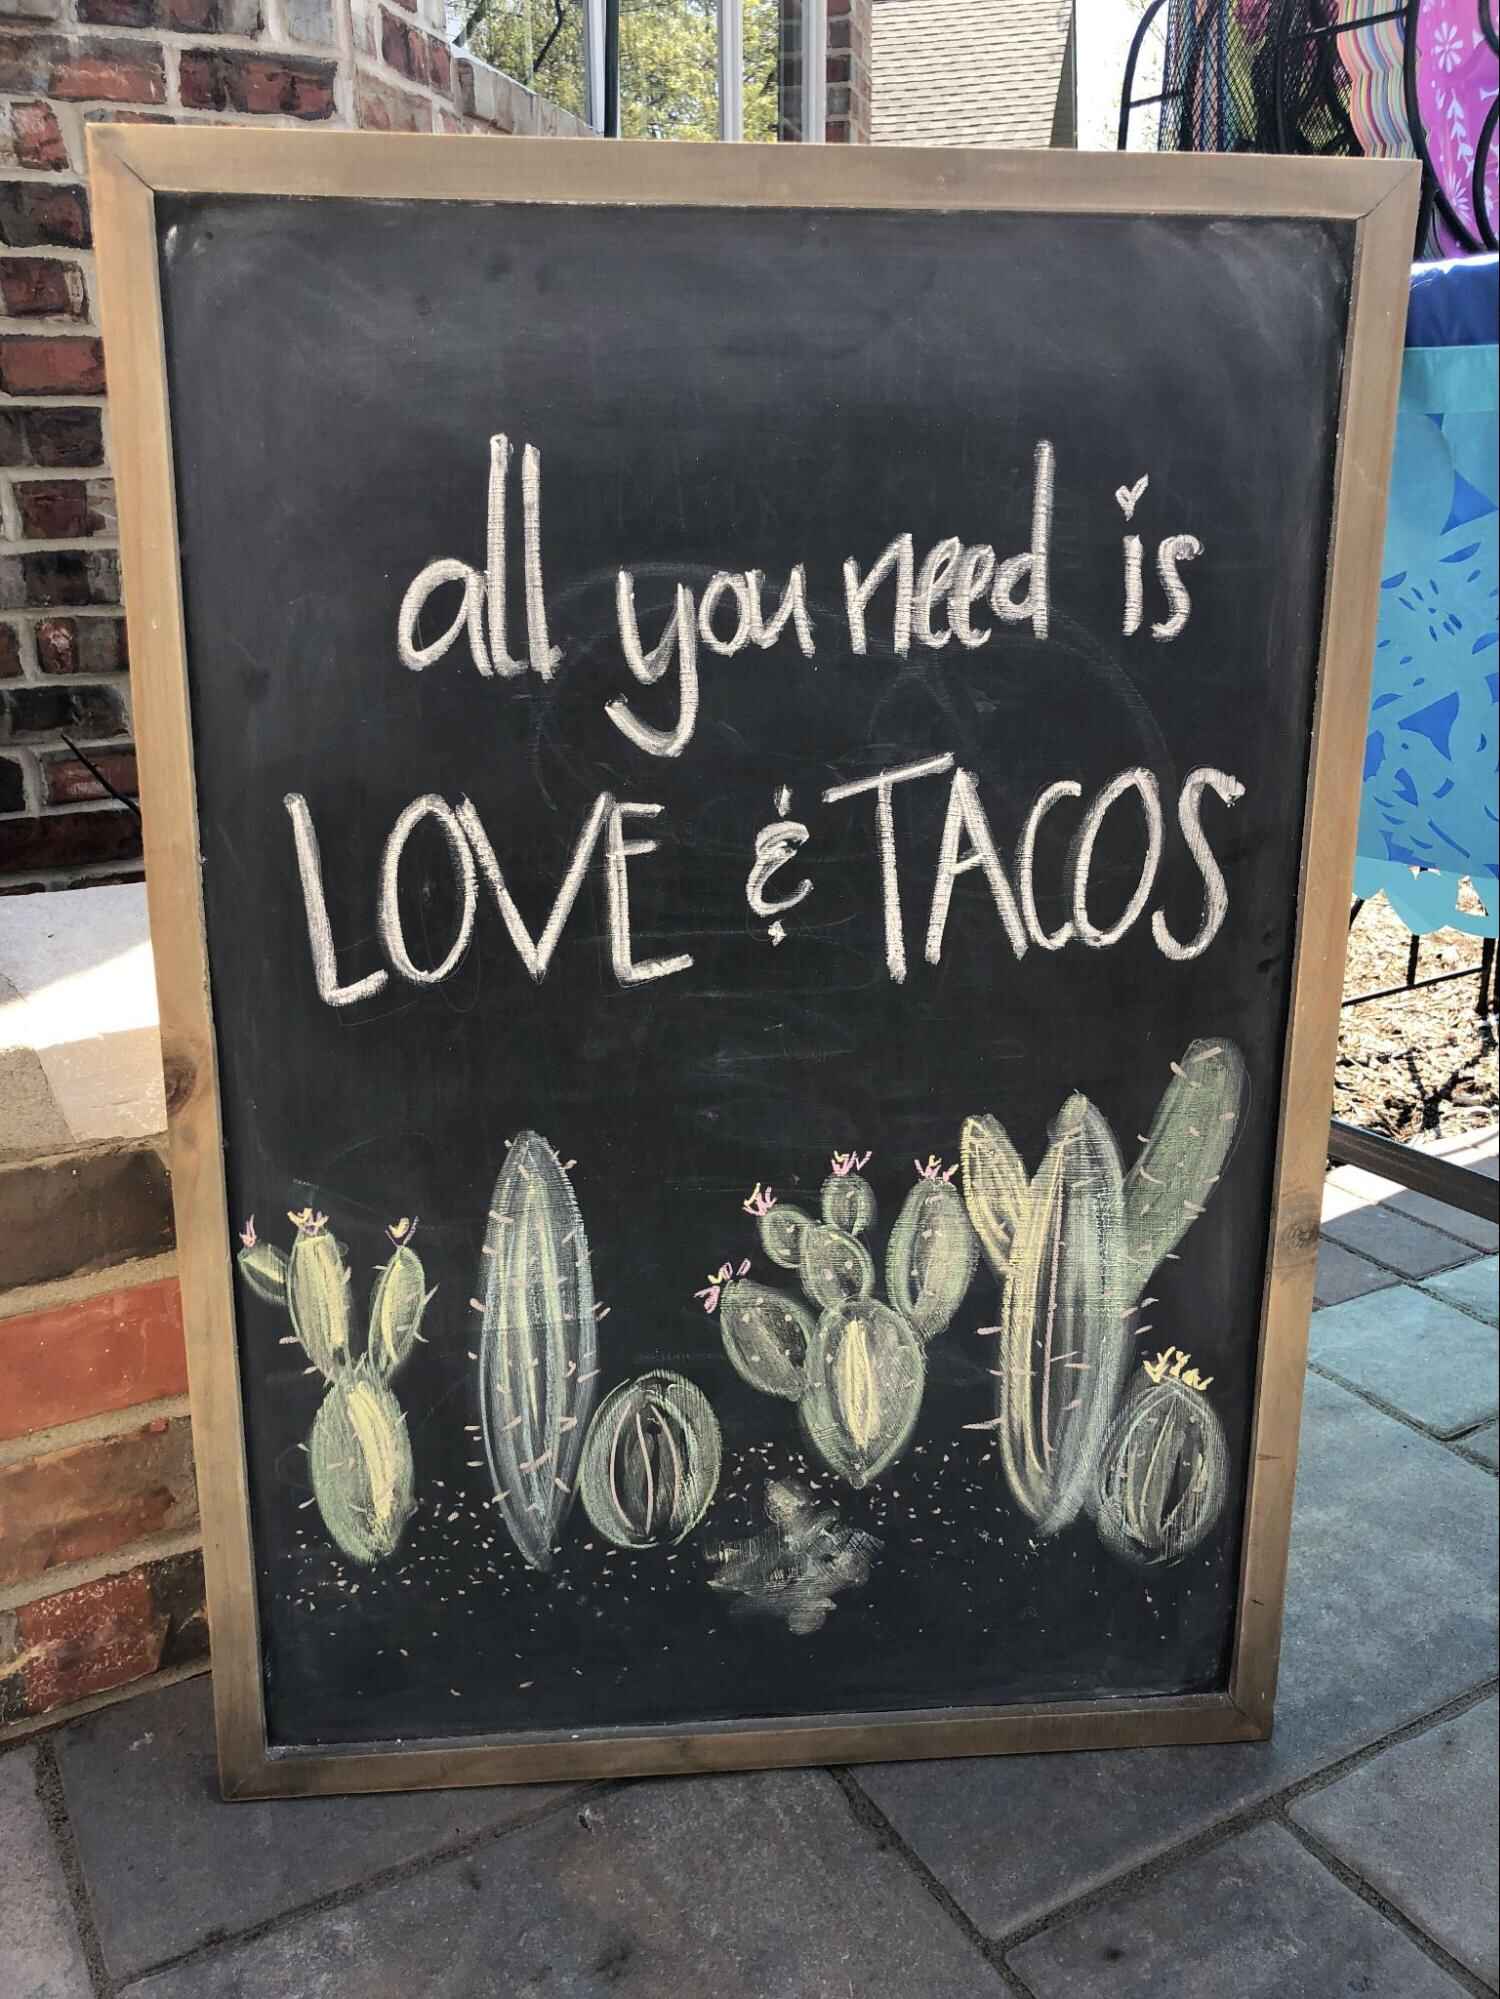 all you need is
LOVE & TACOS